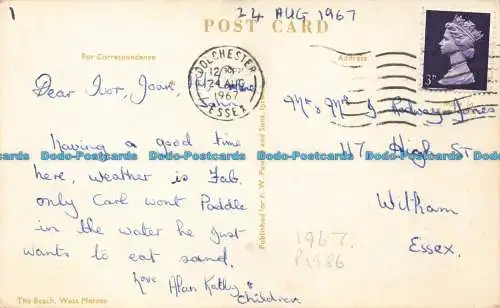 1
24 AUG 1967
POST CARD
For Correspondence
Address
COLCHESTER
24 AUG
1967
ESSEX
3D
Dear Ivor, Joan,
John,
having a good time
here, weather is Fab.
only Carl wont Paddle
in the water he Just
wants to eat sand.
love Alan Kathy &
Children
Mr & Mrs I Jones
117 High St
Witham
Essex.
1967?
P1986
The Beach, West Mersea
Published for F. W. and Sons,
Dodo-Postcards Dodo-Postcards Dodo-Postcards